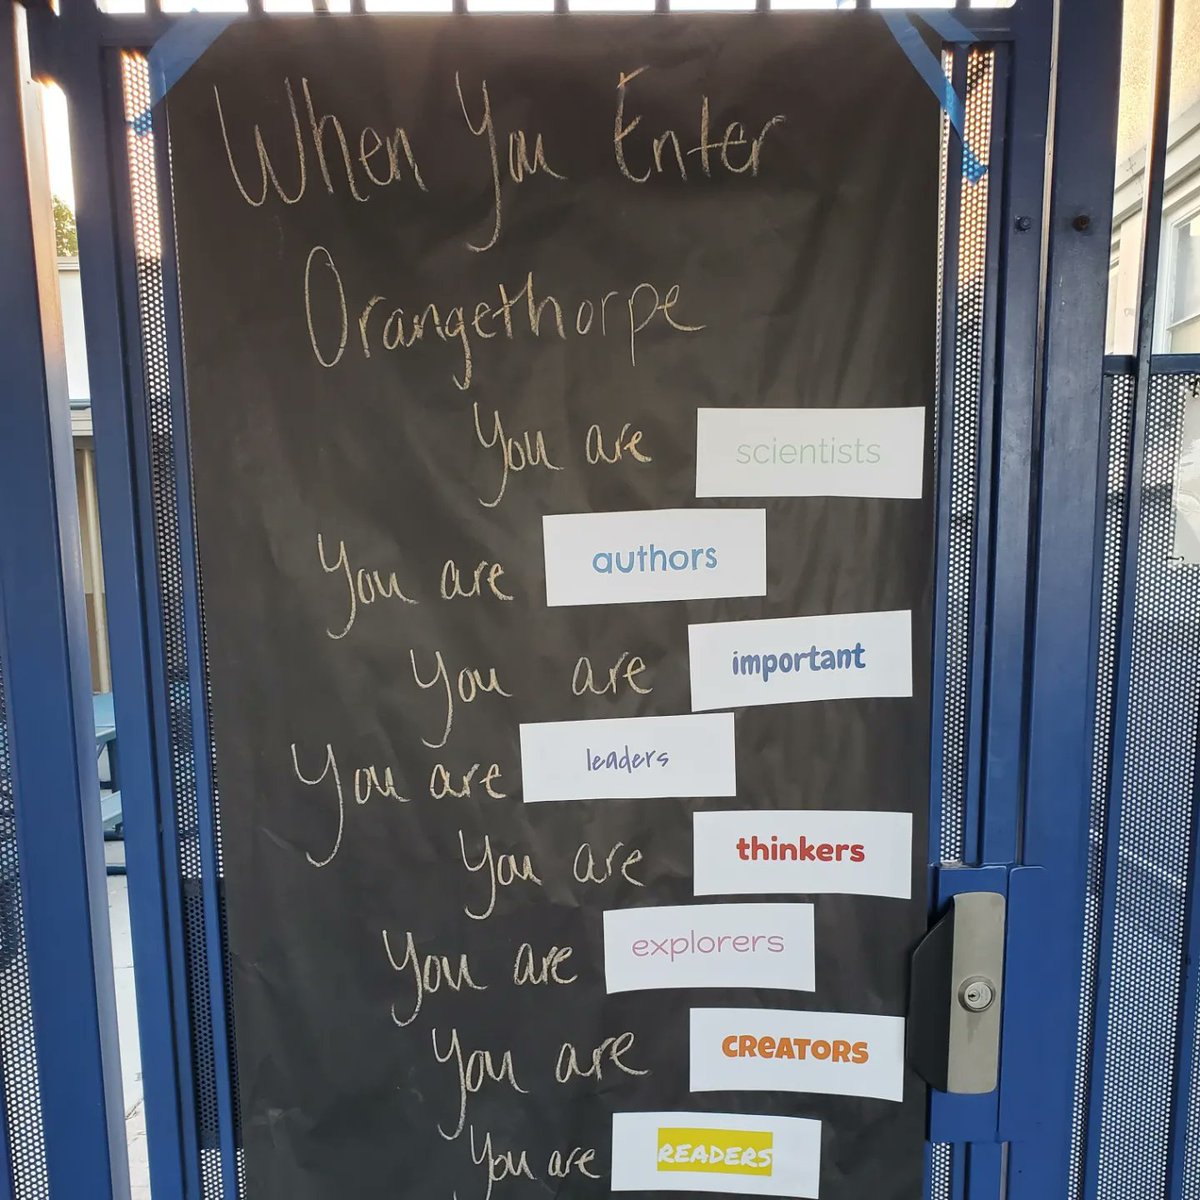 When You Enter
Orangethorpe
You are scientists
You are authors
You are important
You are leaders
You are thinkers
You are explorers
You are CREATORS
You are READERS